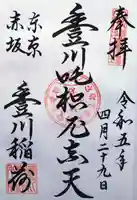 奉拝
令和五年
四月二十九日
豊川吒枳尼真天
東京
赤坂
豊川稲荷